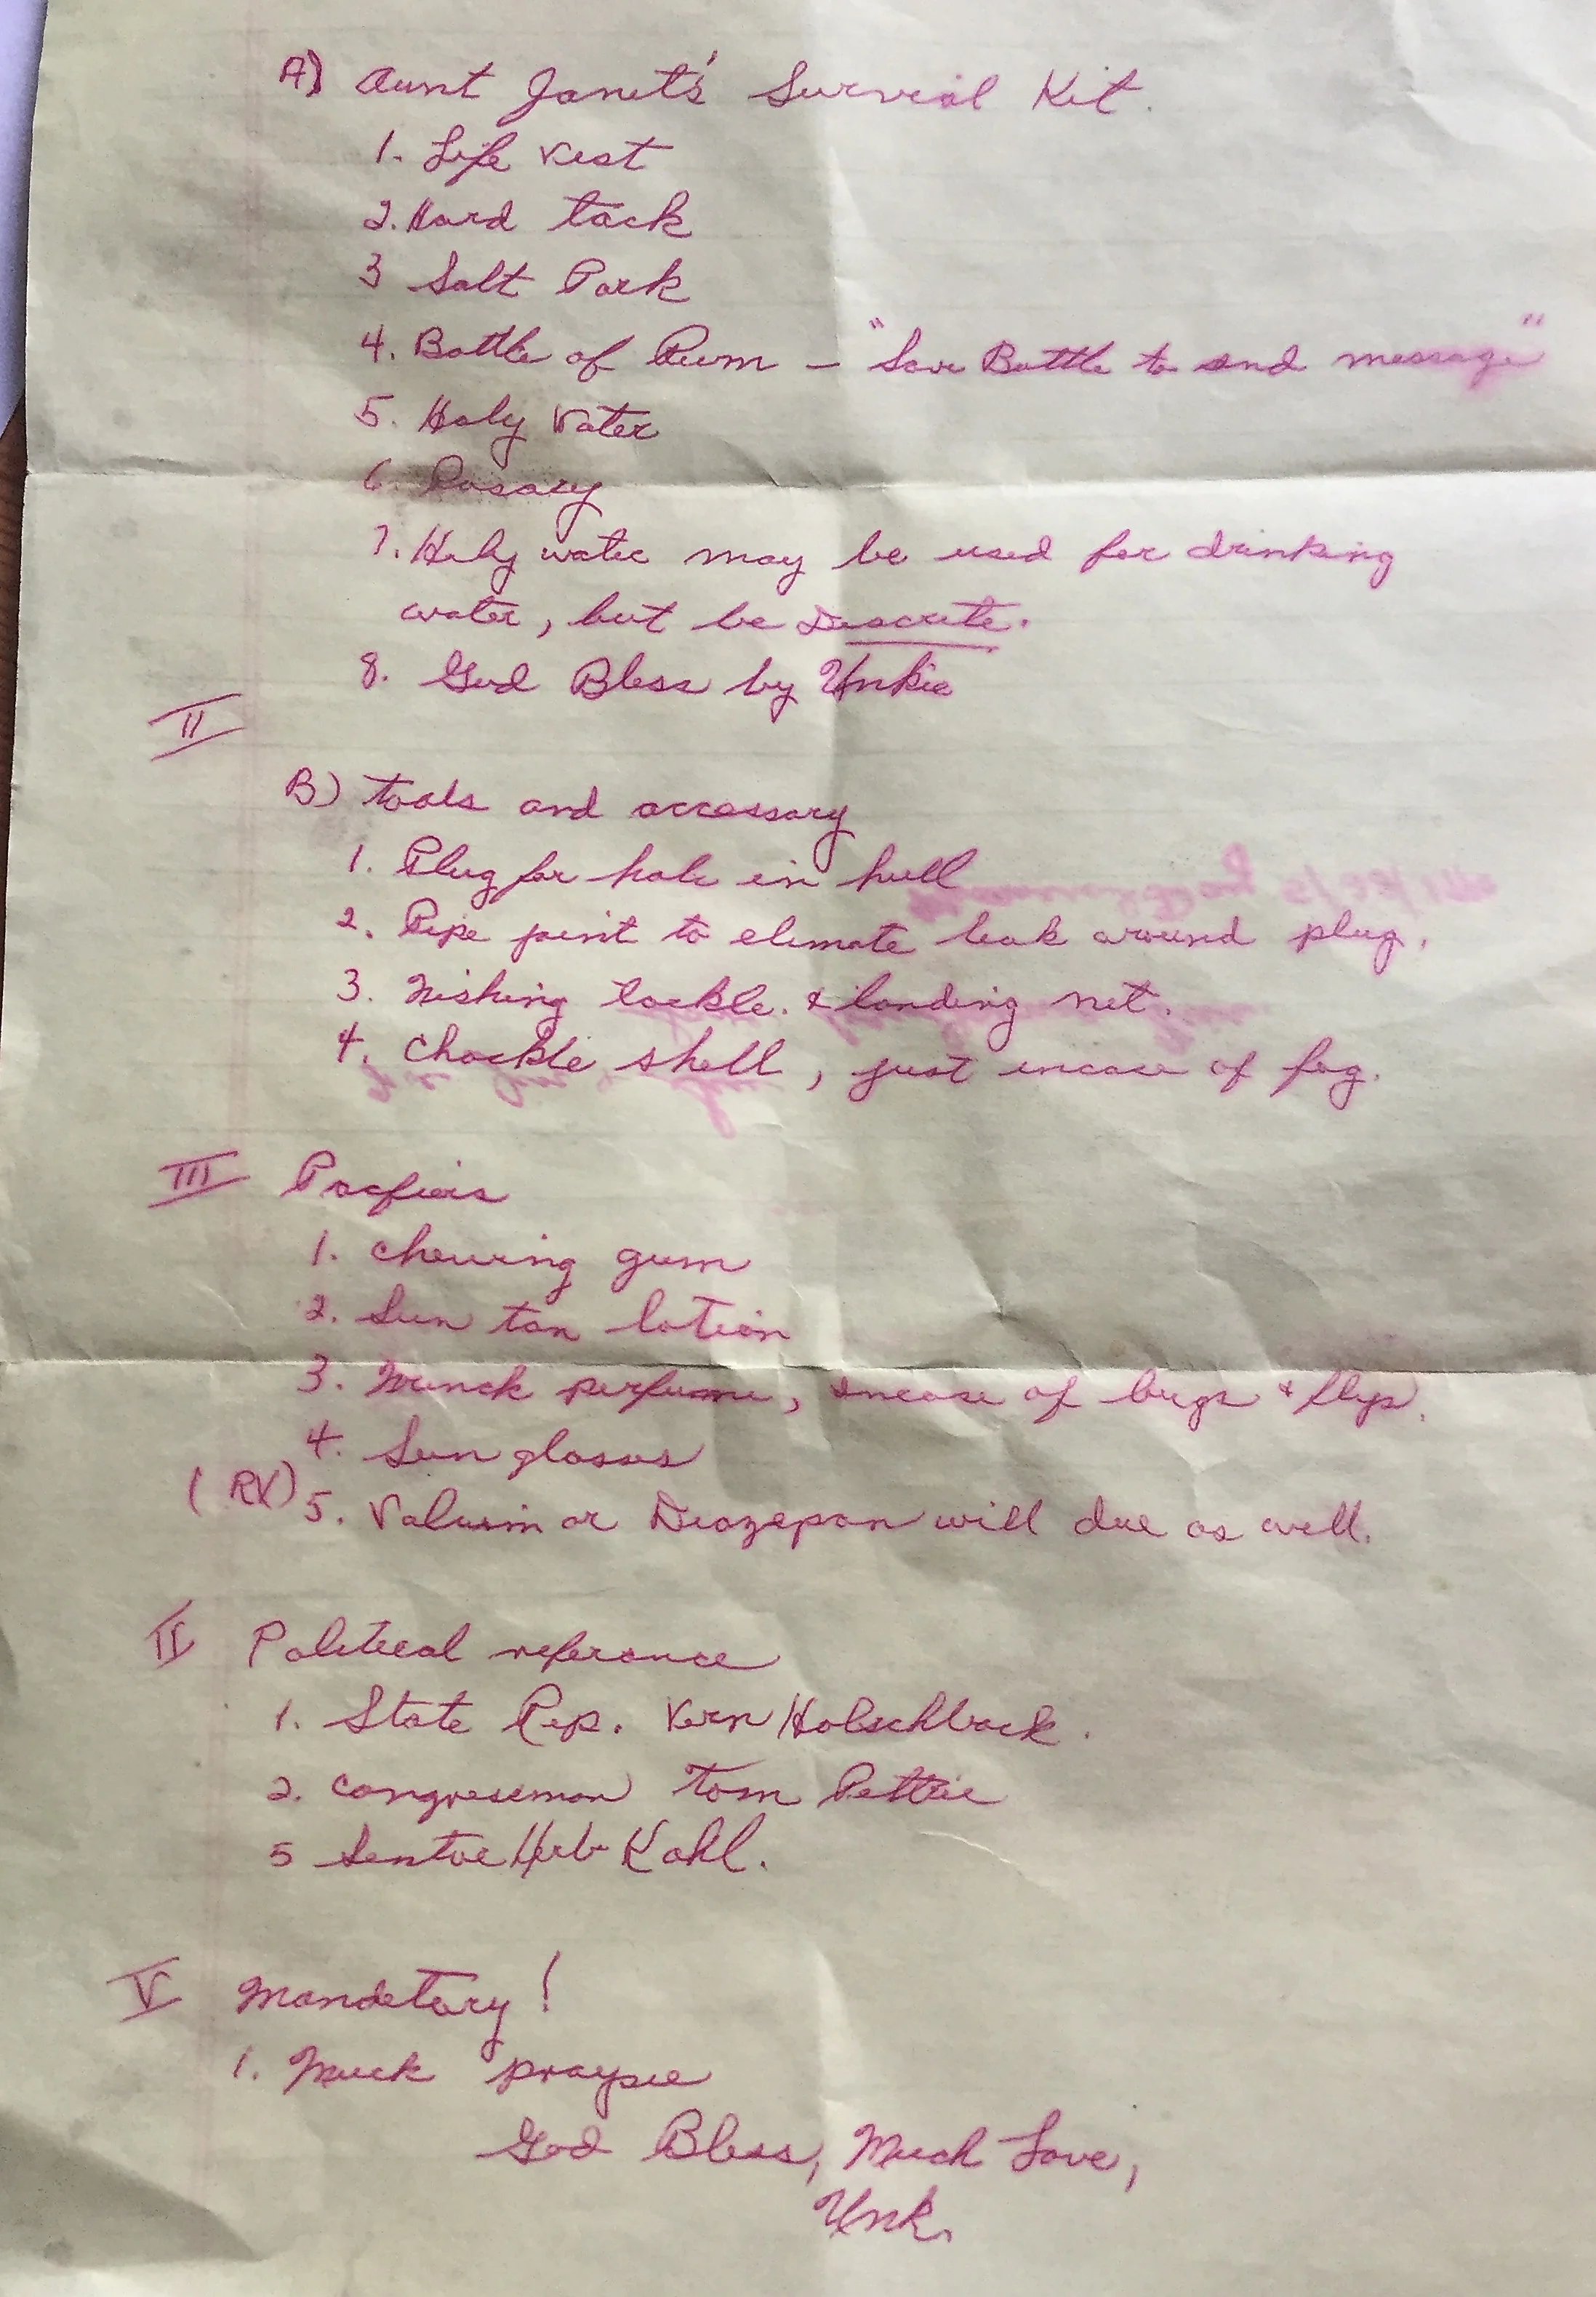 A) Aunt Janet's Survial Kit.
1. Life Vest
2. Hard tack
3 Salt Pork
4. Bottle of Rum – "Save Bottle to send message"
5. Holy Water
6. Rosary
7. Holy water may be used for drinking
water, but be Descrete.
8. God Bless by Unkie
II
B) tools and accessary
1. Plug for hole in hull
2. Pipe joint to elimate leak around plug.
3. Fishing tackle. & landing net.
4. Chockle shell, just incase of fog.
III
1. Chewing gum
2. Sun tan lotion
3. perfume, incase of bugs & flys.
4. Sun glasses
(RX) 5. Valuim or Diazepan will due as well.
Political referance
1. State Rep. Vern Holschback.
2. Congressman Tom Pettrie
5 Sentor Herb Kohl.
V Mandetory!
1. Much
God Bless, Much Love,
Unk.